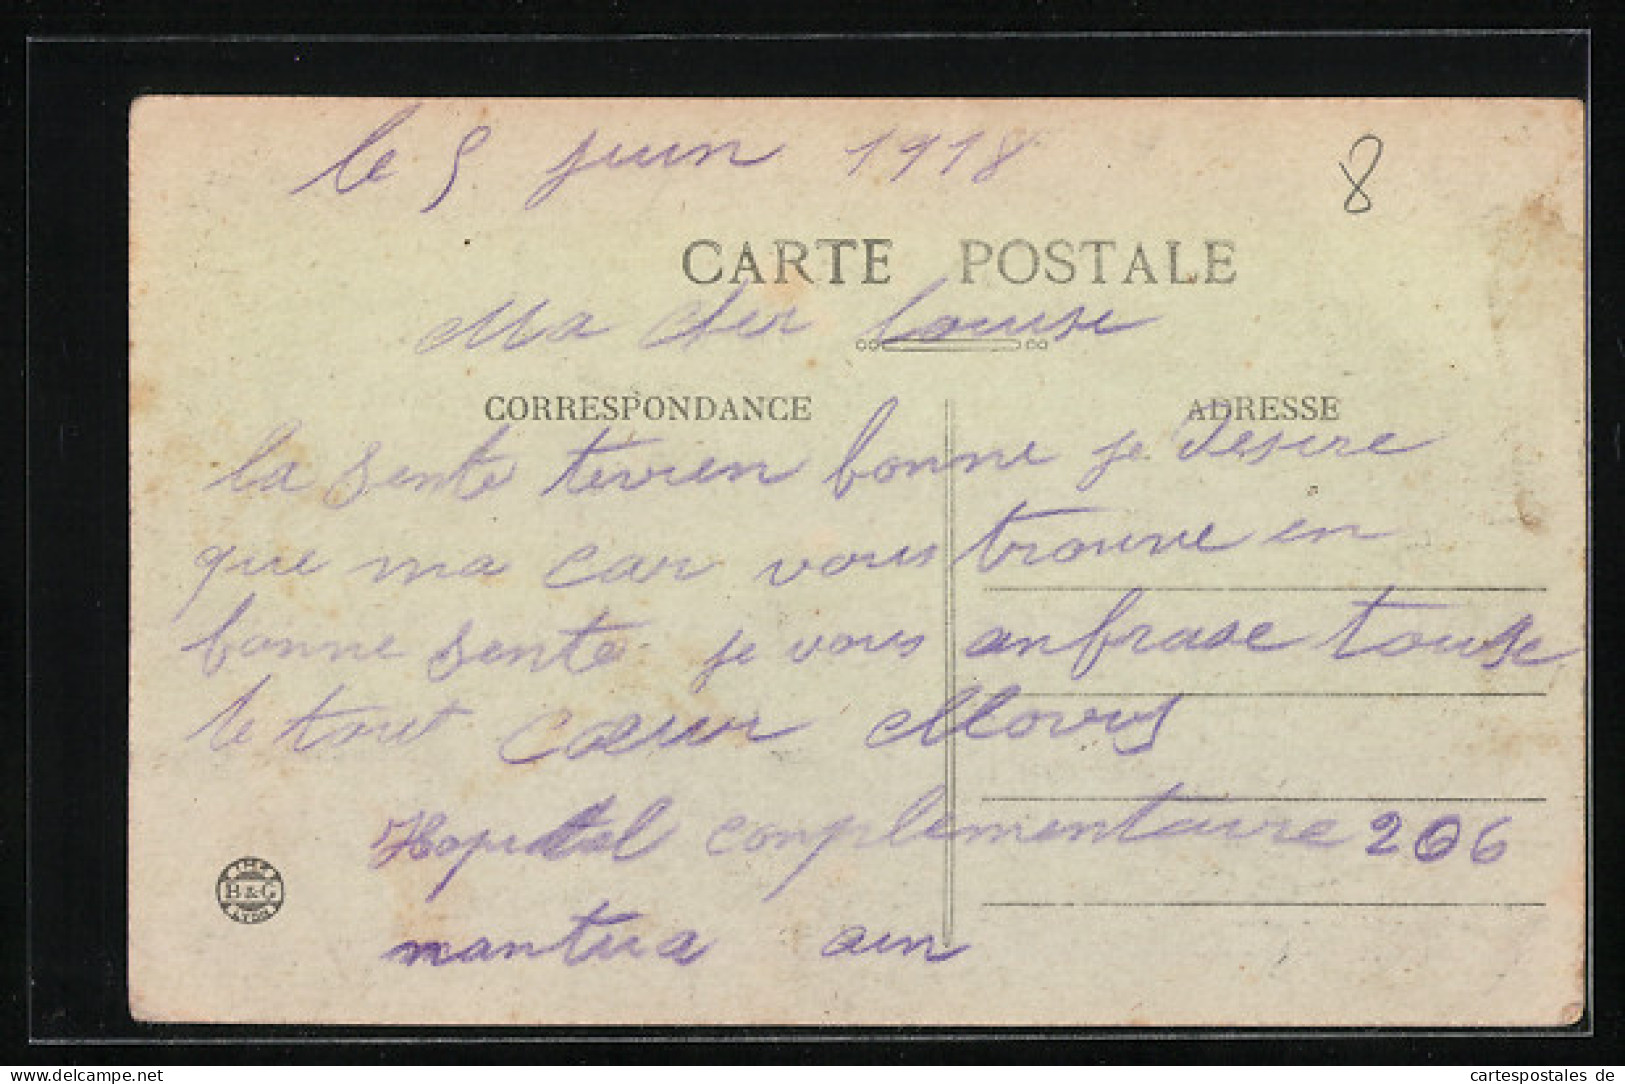 le 5 juin 1918
8
CARTE POSTALE
Ma cher Louise
CORRESPONDANCE
ADRESSE
la sente tévien bonne je désire
que ma car vous trouve en
bonne sente je vous anbrase touse
le tout cœur
Hopital conplementaire 206
mantua ain
IMP.
B & G
LYON
delcampe.net
cartespostales de